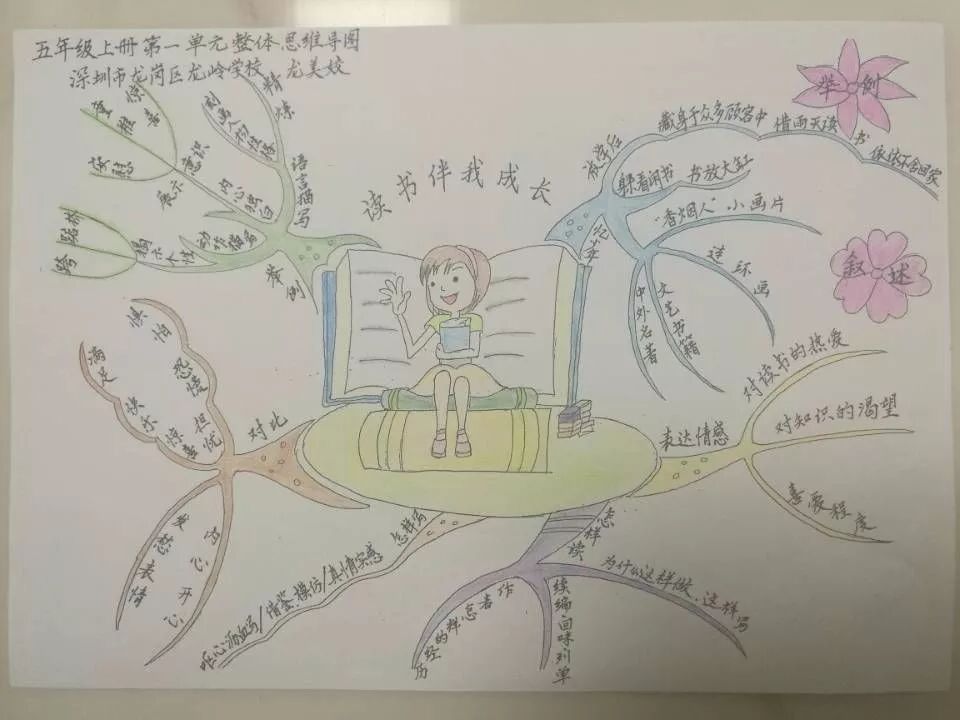 五年级上册第一单元整体思维导图
深圳市龙岗区龙岭学校 龙美姣
读书伴我成长
举例
叙述
放学后
藏身于众多顾客中
借雨天读书
依依不舍回家
躲着闲书
书放大缸
忆苦
"香烟人"小画片
连环画
文艺书籍
中外名著
表达情感
对读书的热爱
对知识的渴望
喜爱程度
怎样读
为什么这样做、这样写
续编回味列单
作者怎样的经历
怎样写
呕心沥血写/借鉴、模仿/真情实感
对比
惧怕
恐慌
担忧
满足
快乐
惊喜
语言描写
精炼
刻画人物性格
内心独白
动作描写
举例
意识
展示
惊喜